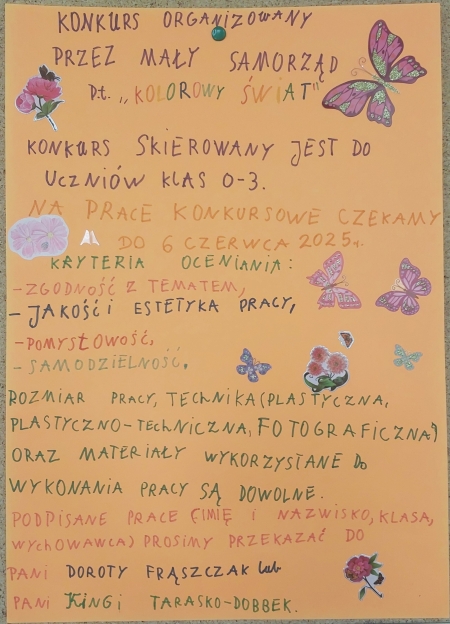 KONKURS ORGANIZOWANY
PRZEZ MAŁY SAMORZĄD
p.t. ,,KOLOROWY ŚWIAT"
KONKURS SKIEROWANY JEST DO
UCZNIÓW KLAS 0-3.
NA PRACE KONKURSOWE CZEKAMY
DO 6 CZERWCA 2025r.
KRYTERIA OCENIANIA:
-ZGODNOŚĆ Z TEMATEM,
-JAKOŚĆ i ESTETYKA PRACY,
-POMYSŁOWOŚĆ,
-SAMODZIELNOŚĆ.
ROZMIAR PRACY, TECHNIKA (PLASTYCZNA,
PLASTYCZNO-TECHNICZNA, FOTOGRAFICZNA)
ORAZ MATERIAŁY WYKORZYSTANE DO
WYKONANIA PRACY SĄ DOWOLNE.
PODPISANE PRACE (IMIĘ i NAZWISKO, KLASA,
WYCHOWAWCA) PROSIMY PRZEKAZAĆ DO
PANI DOROTY FRĄSZCZAK lub
PANI KINGI TARASKO-DOBBEK.